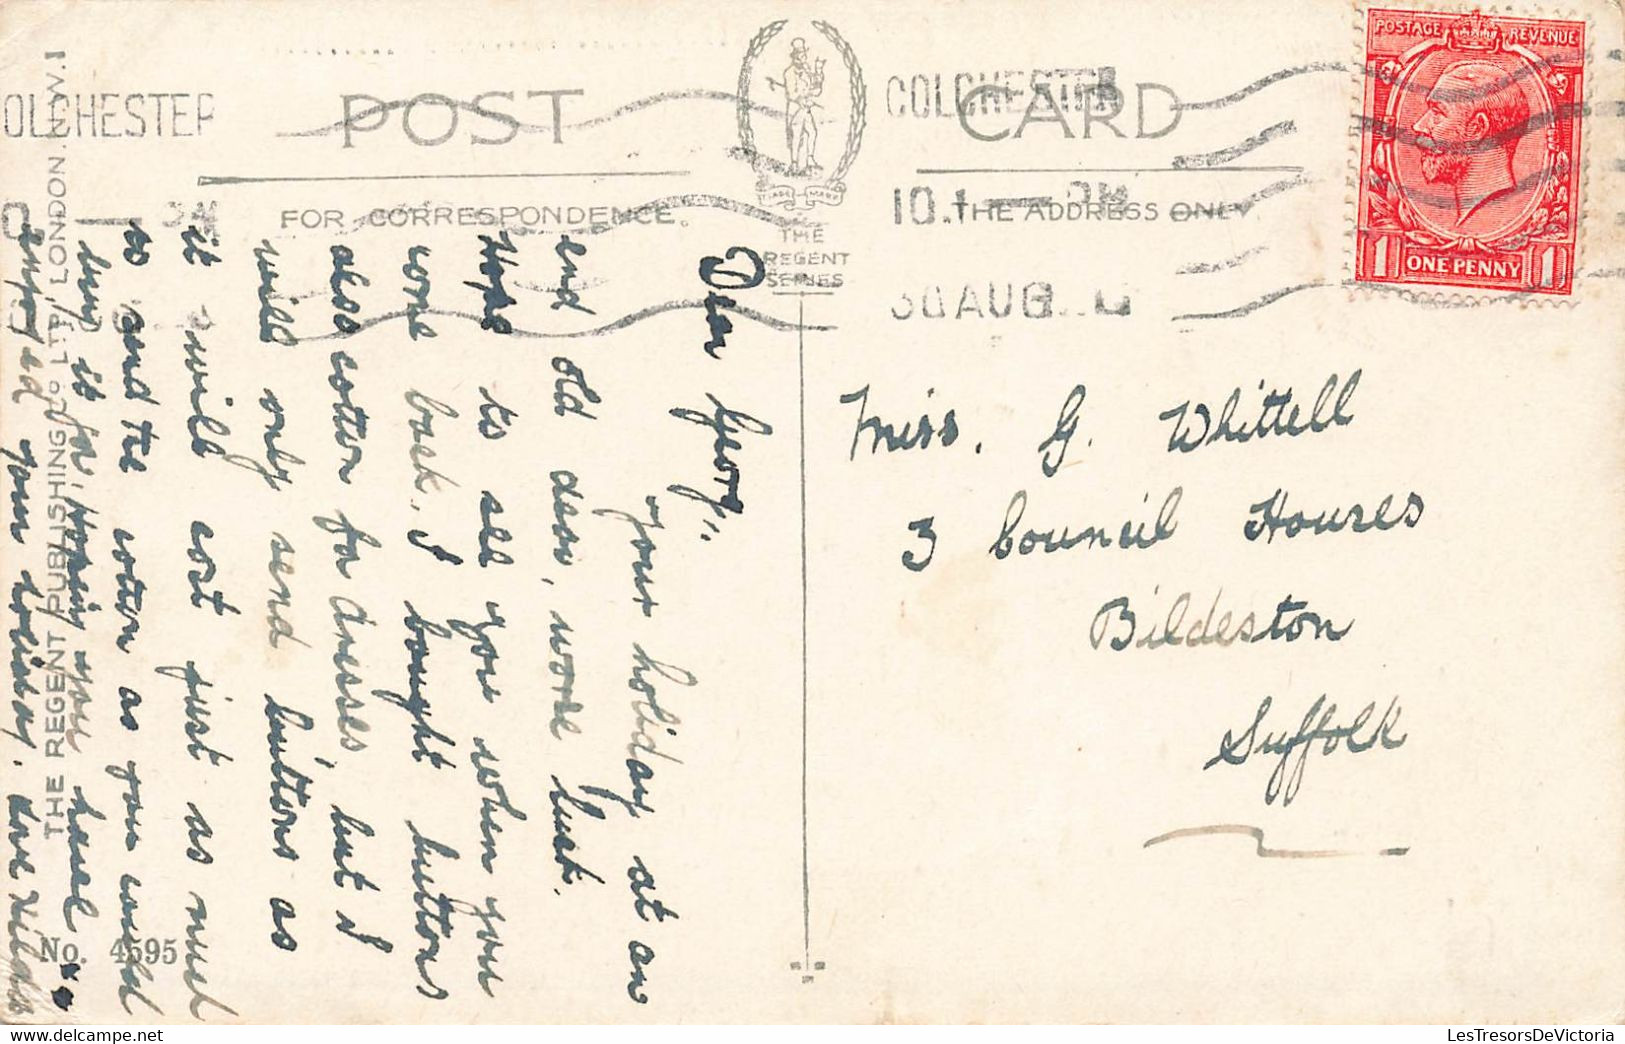 POST CARD
TRADE MARK
FOR CORRESPONDENCE.
THE ADDRESS ONLY
THE
REGENT
SERIES
COLCHESTER
10.1
30 AUG
OLCHESTER
POSTAGE REVENUE
1 ONE PENNY 1
Dear Georg,,
Your holiday at an
end old dear, worse luck.
Hope to see you when you
come back. I bought buttons
also cotton for dresses, but I
will only send buttons as
it will cost just as much
to send the cotton as you could
buy it for, Hoping you have
enjoyed your holiday. love Hilda
xx
Miss. G. Whittell
3 Council Houses
Bildeston
Suffolk
THE REGENT PUBLISHING Co LTD, LONDON. N.W.1
No. 4595
LesTresorsDeVictoria